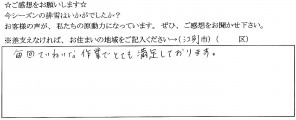 ☆ご感想をお願いします☆
今シーズンの排雪はいかがでしたか?
お客様の声が、私たちの原動力になっています。ぜひ、ご感想をお聞かせ下さい。
※差支えなければ、お住まいの地域をご記入ください→(江別市)( 区)
毎回ていねいな作業でとても満足しております。